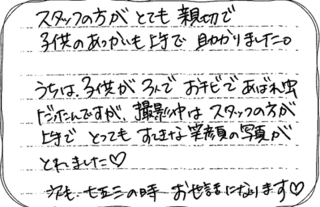 スタッフの方がとても親切で
子供のあつかいも上手で助かりました。
うちは、子供が3人でおチビであばれ虫
だったんですが、撮影中はスタッフの方が
上手でとってもすてきな笑顔の写真が
とれました♡
次も、七五三の時お世話になります♡